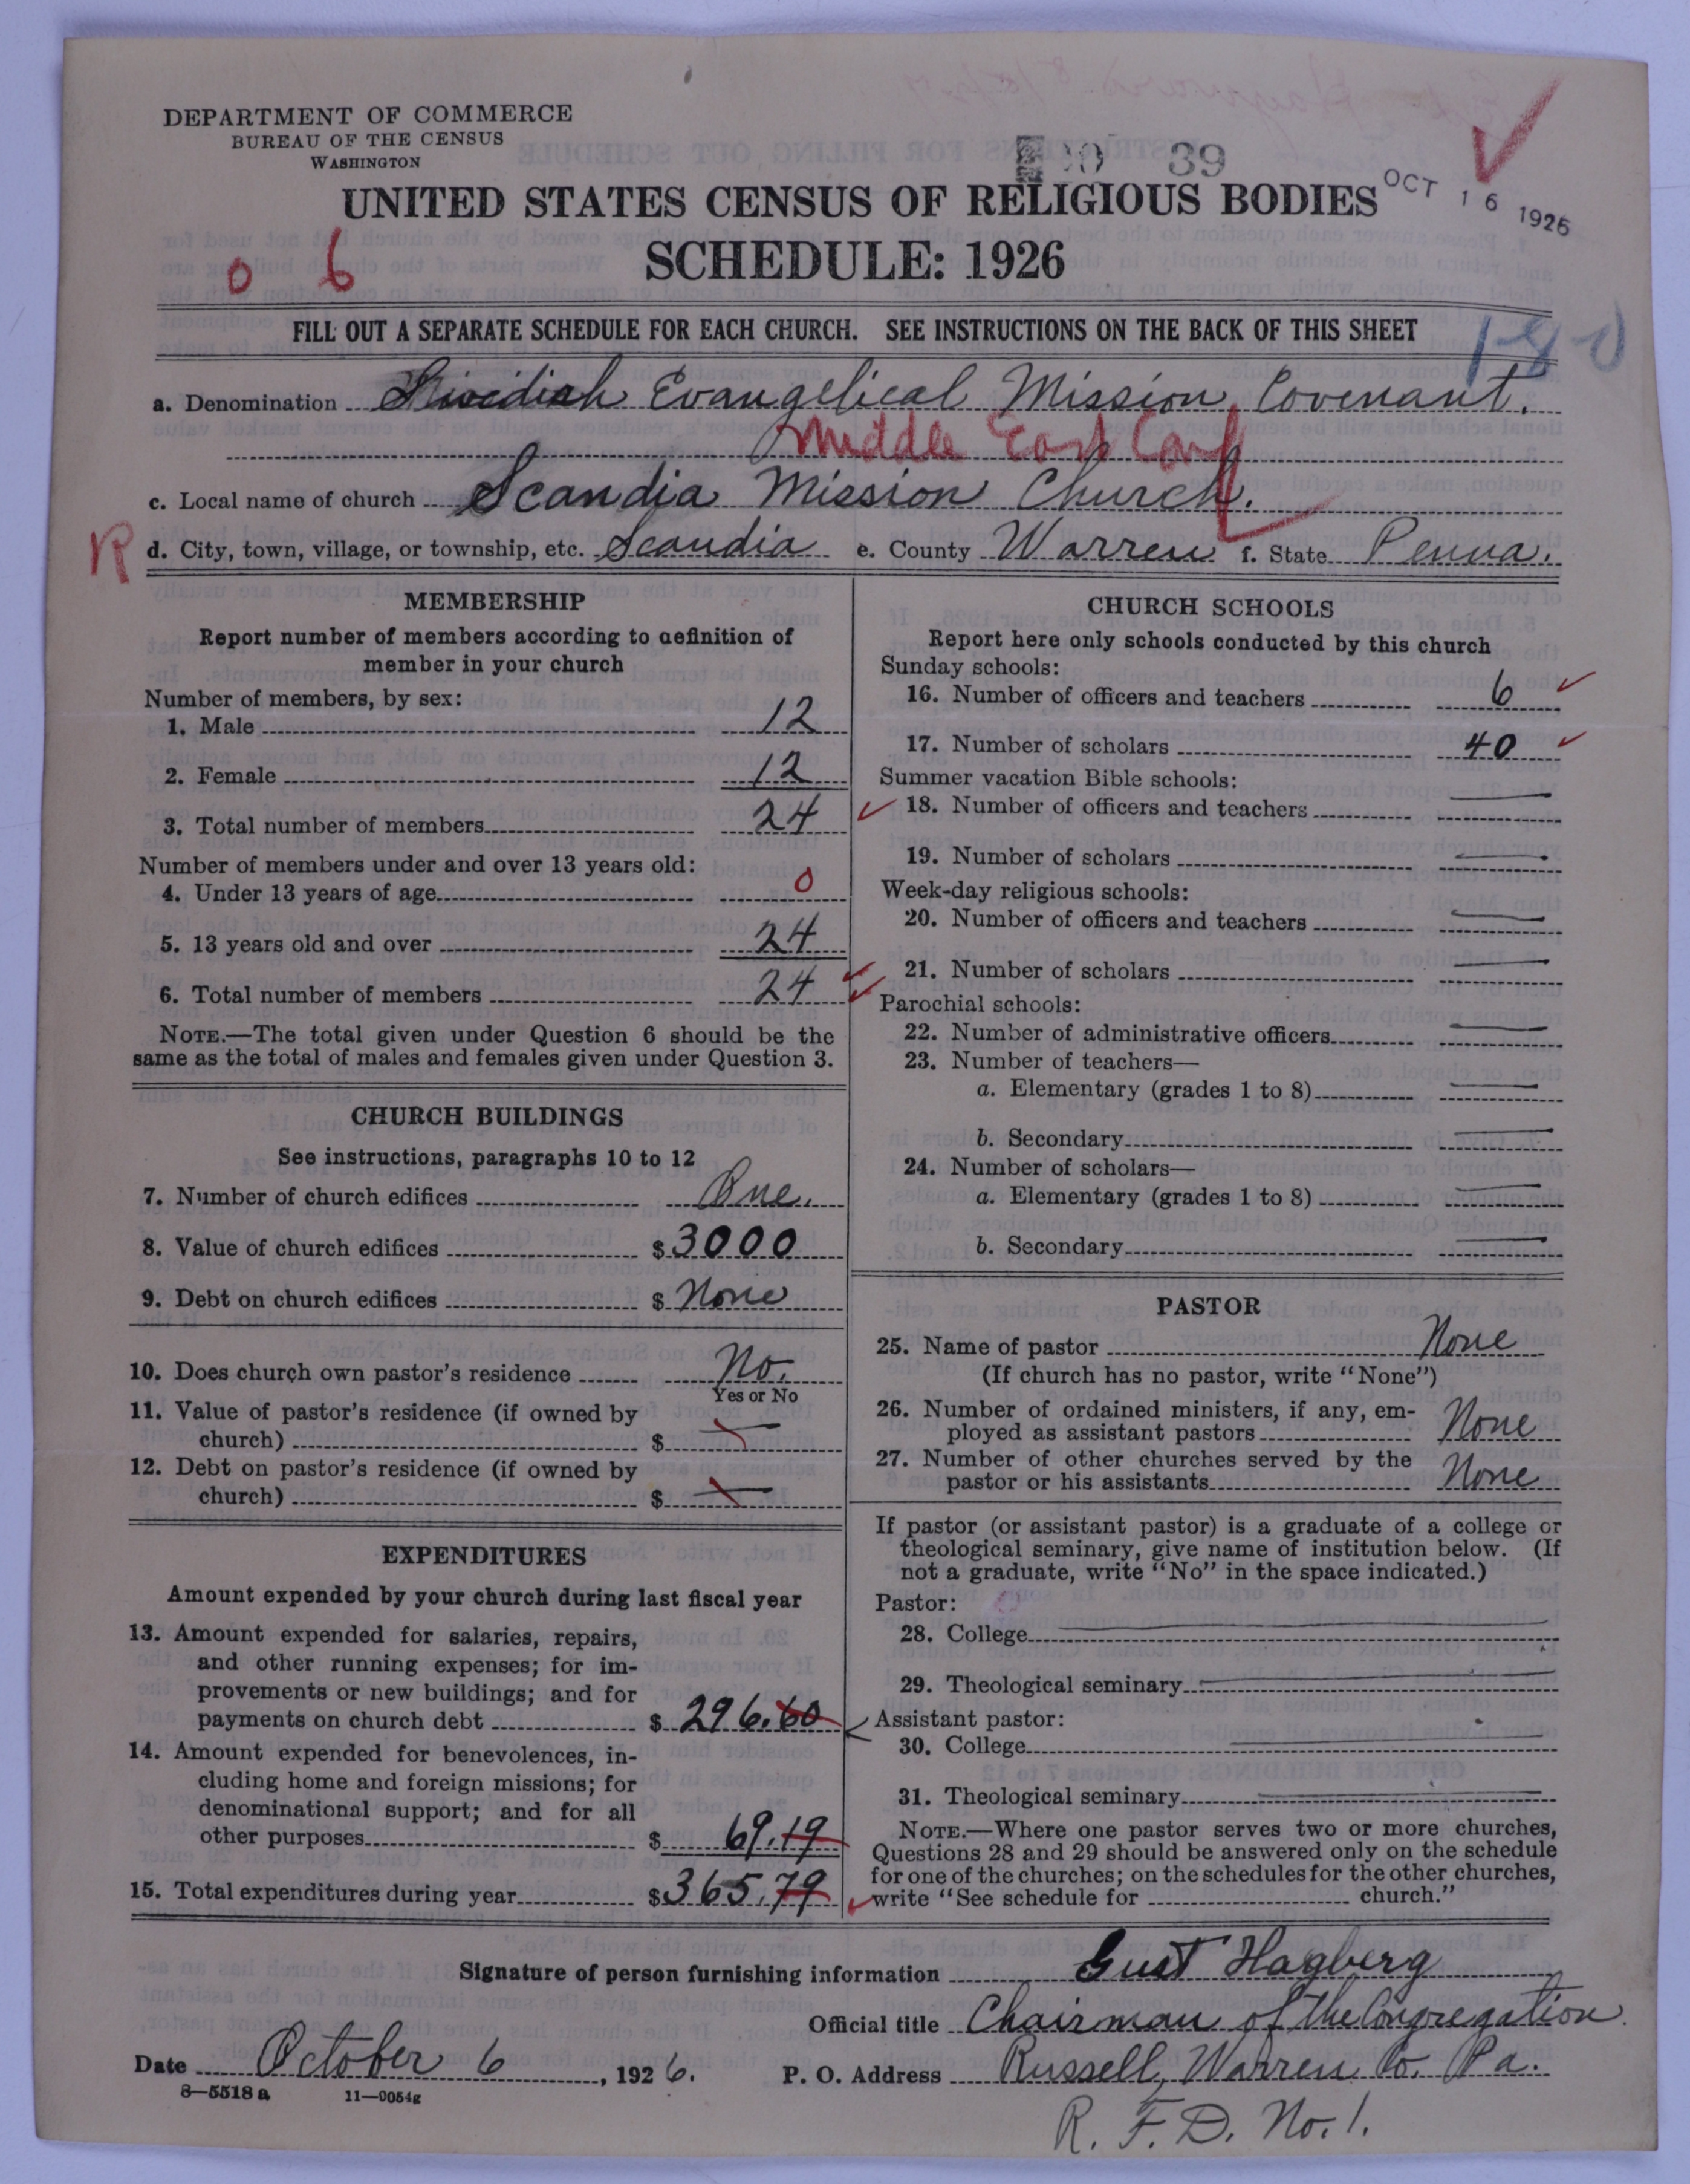 DEPARTMENT OF COMMERCE
BUREAU OF THE CENSUS
WASHINGTON
39
OCT 16 1926
UNITED STATES CENSUS OF RELIGIOUS BODIES
SCHEDULE: 1926
0 6
FILL OUT A SEPARATE SCHEDULE FOR EACH CHURCH. SEE INSTRUCTIONS ON THE BACK OF THIS SHEET
a. Denomination Swedish Evangelical Mission Covenant.
Middle East Conf
c. Local name of church Scandia Mission Church.
R
d. City, town, village, or township, etc. Scandia e. County Warren f. State Penna.
MEMBERSHIP
Report number of members according to definition of
member in your church
Number of members, by sex:
1. Male 12
2. Female 12
3. Total number of members 24
Number of members under and over 13 years old:
4. Under 13 years of age 0
5. 13 years old and over 24
6. Total number of members 24
NOTE.—The total given under Question 6 should be the
same as the total of males and females given under Question 3.
CHURCH BUILDINGS
See instructions, paragraphs 10 to 12
7. Number of church edifices One.
8. Value of church edifices $ 3000
9. Debt on church edifices $ None
10. Does church own pastor's residence No.
Yes or No
11. Value of pastor's residence (if owned by
church) $
12. Debt on pastor's residence (if owned by
church) $
EXPENDITURES
Amount expended by your church during last fiscal year
13. Amount expended for salaries, repairs,
and other running expenses; for im-
provements or new buildings; and for
payments on church debt $ 296.60
14. Amount expended for benevolences, in-
cluding home and foreign missions; for
denominational support; and for all
other purposes $ 69.19
15. Total expenditures during year $ 365.79
CHURCH SCHOOLS
Report here only schools conducted by this church
Sunday schools:
16. Number of officers and teachers 6
17. Number of scholars 40
Summer vacation Bible schools:
18. Number of officers and teachers
19. Number of scholars
Week-day religious schools:
20. Number of officers and teachers
21. Number of scholars
Parochial schools:
22. Number of administrative officers
23. Number of teachers—
a. Elementary (grades 1 to 8)
b. Secondary
24. Number of scholars—
a. Elementary (grades 1 to 8)
b. Secondary
PASTOR
25. Name of pastor None
(If church has no pastor, write "None")
26. Number of ordained ministers, if any, em-
ployed as assistant pastors None
27. Number of other churches served by the
pastor or his assistants None
If pastor (or assistant pastor) is a graduate of a college or
theological seminary, give name of institution below. (If
not a graduate, write "No" in the space indicated.)
Pastor:
28. College
29. Theological seminary
Assistant pastor:
30. College
31. Theological seminary
NOTE.—Where one pastor serves two or more churches,
Questions 28 and 29 should be answered only on the schedule
for one of the churches; on the schedules for the other churches,
write "See schedule for church."
Signature of person furnishing information Gust Hagberg
Official title Chairman of the Congregation
Date October 6, 1926. P. O. Address Russell, Warren Co. Pa.
8—5518 a 11—9054g
R. F. D. No. 1.